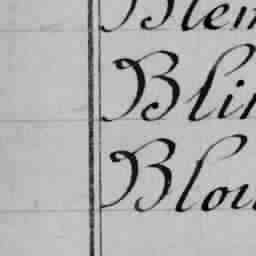 Blem
Blin
Blou